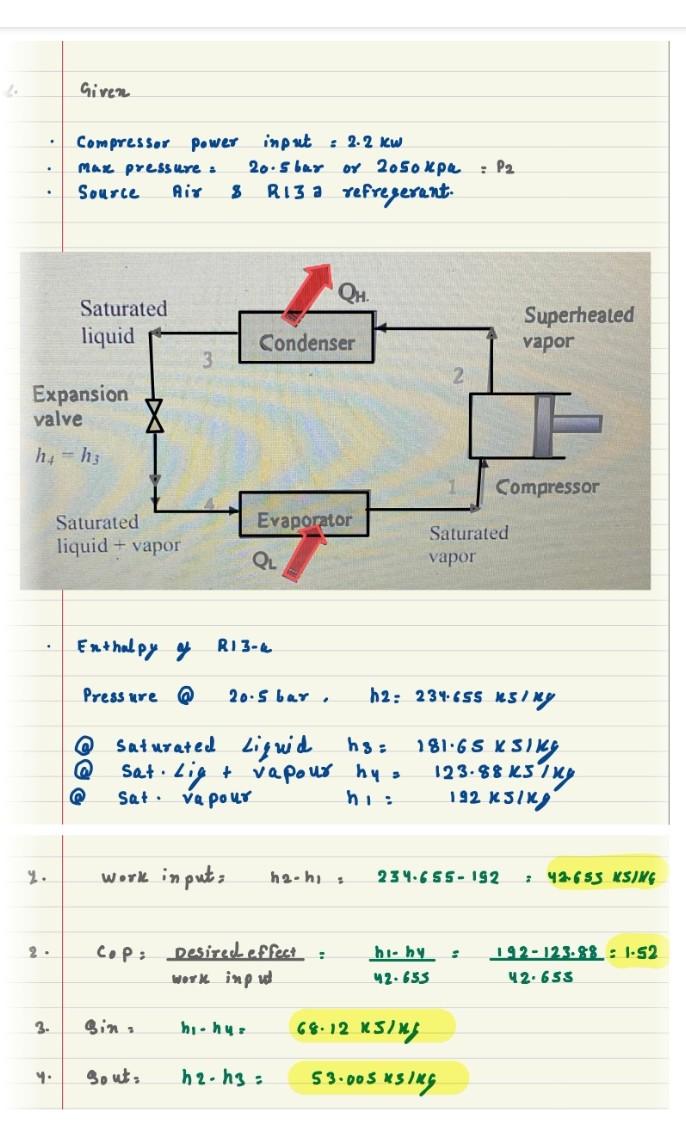 Given
• Compressor power input = 2.2 kW
• Max pressure = 20.5 bar or 2050 Kpa = P2
• Source Air & R13a refregerant.
QH.
Saturated
liquid
Condenser
Superheated
vapor
3
2
Expansion
valve
h4 = h3
1
Compressor
4
Evaporator
Saturated
liquid + vapor
Saturated
vapor
QL
• Enthalpy of R13-a
Pressure @ 20.5 bar, h2= 234.655 KJ/Kg
@ Saturated Liquid h3= 181.65 KJ/Kg
@ Sat. Liq + vapour h4= 123.88 KJ/Kg
@ Sat. vapour h1= 192 KJ/Kg
1. Work input= h2-h1 = 234.655-192 = 42.655 KJ/KG
2. COP= Desired effect = h1-h4 = 192-123.88 = 1.52
work input 42.655 42.655
3. Qin = h1-h4= 68.12 KJ/Kg
4. Qout= h2-h3= 53.005 KJ/KG